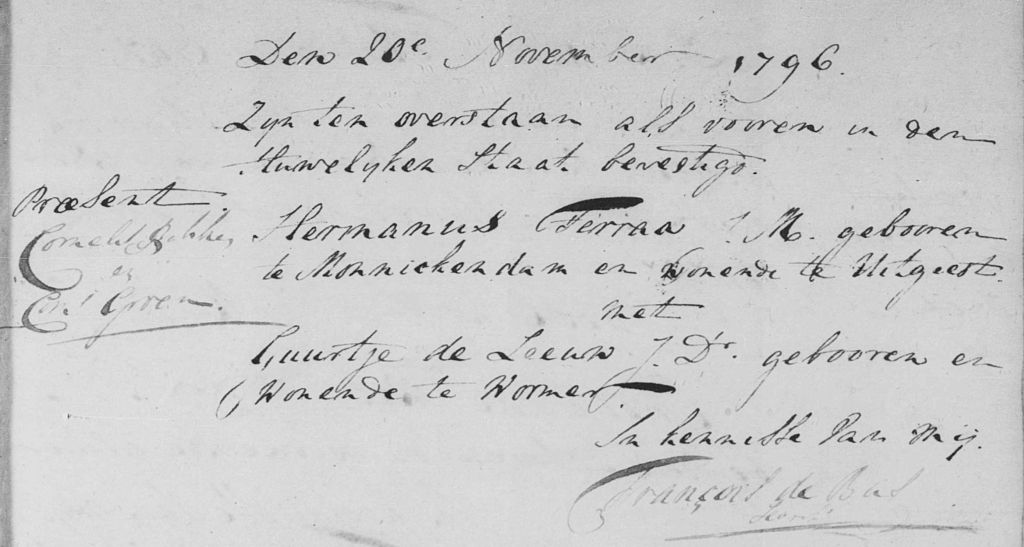 Den 20e November 1796.
Zijn ten overstaan als vooren in den
Huwelijken Staat bevestigd.
Præsent.
Cornelis Bakker
en
Corn.s Groen.
Hermanus Terraa J. M. gebooren
te Monnickendam en wonende te Uitgeest.
met
Guurtje de Leeuw J. Dr. gebooren en
Wonende te Wormer
In kennisse Van Mij.
François de Bas
Secrt.